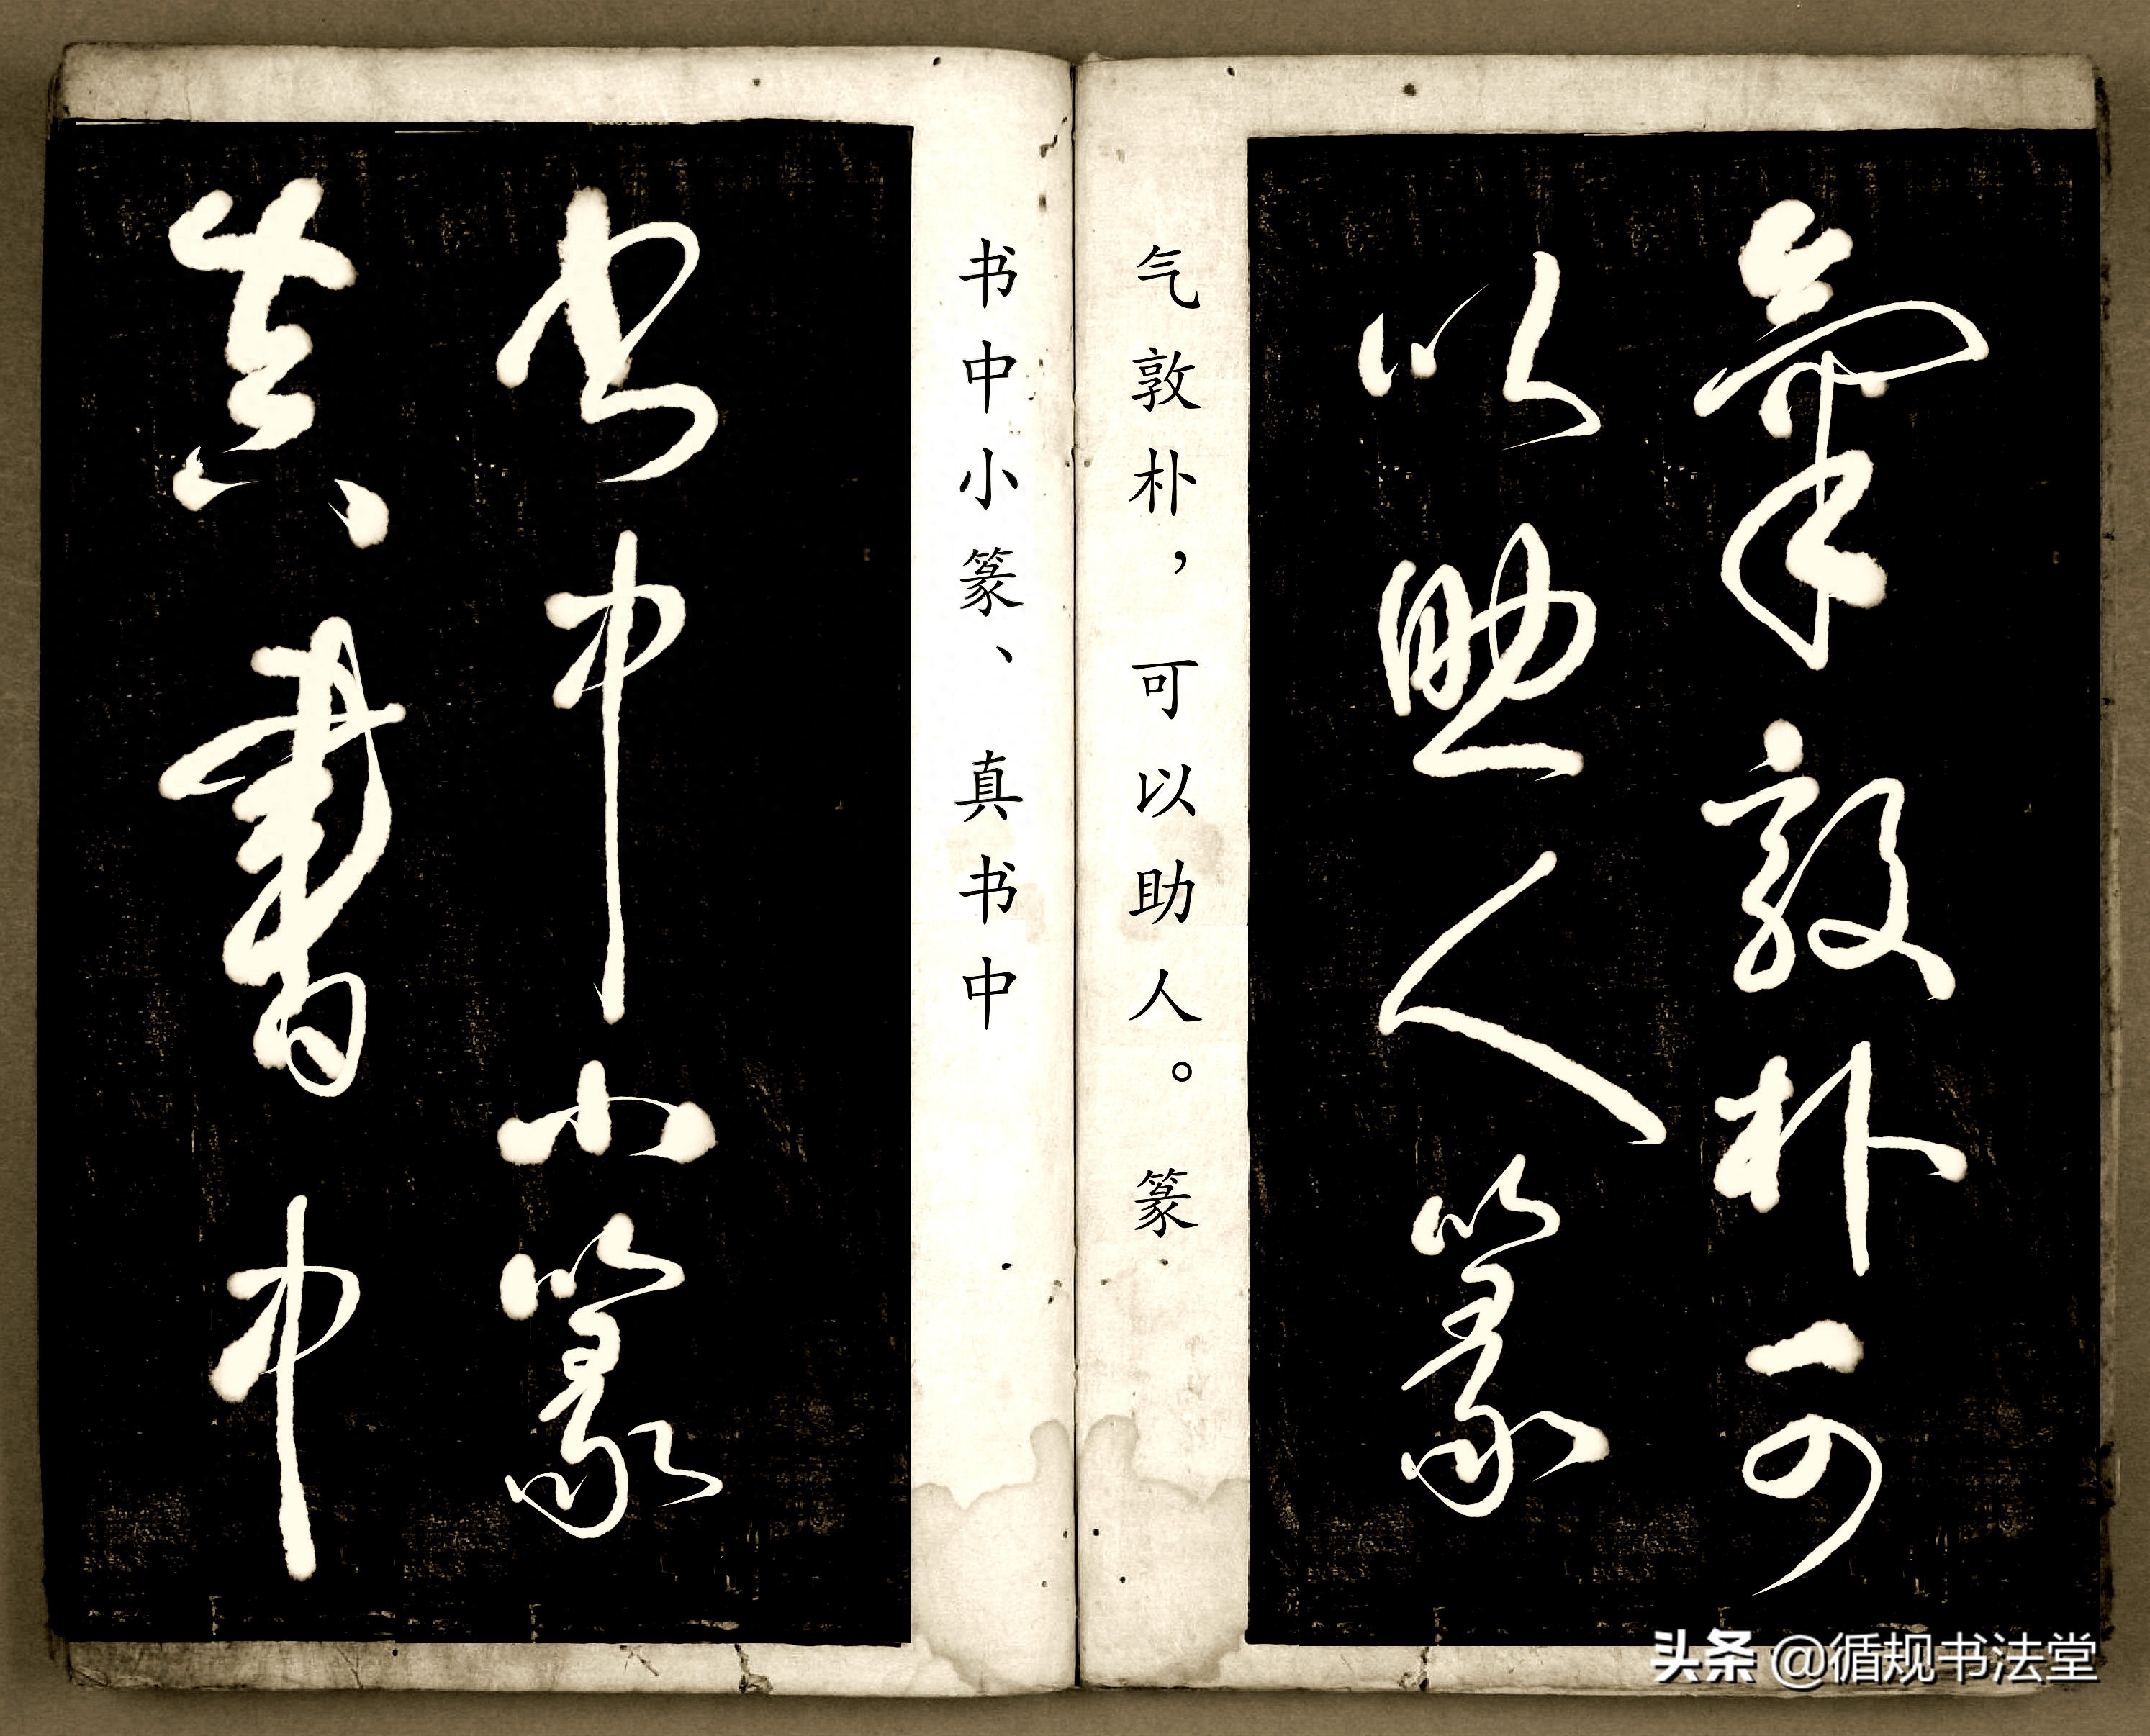 氣敦朴可
以助人篆
气敦朴，可以助人。篆
书中小篆、真书中
书中小篆
真書中
头条 @循规书法堂